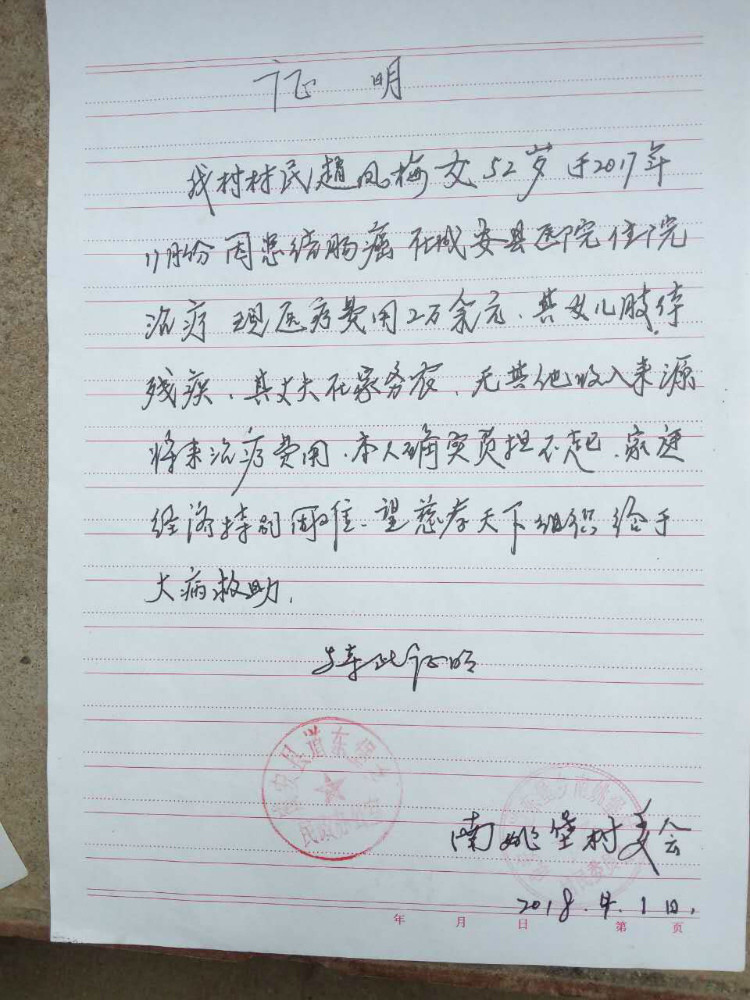 证 明
我村村民赵凤梅 女 52岁 于2017年
11月份因患结肠癌在成安县医院住院
治疗 现医疗费用2万余元、其女儿肢体
残疾、其丈夫在家务农、无其他收入来源
将来治疗费用、本人确实负担不起、家庭
经济特别困难、望慈孝天下组织给于
大病救助,
特此证明
成安县道东堡乡
民政办公室
南姚堡村委会
2018.4.1日,
年 月 日 第 页